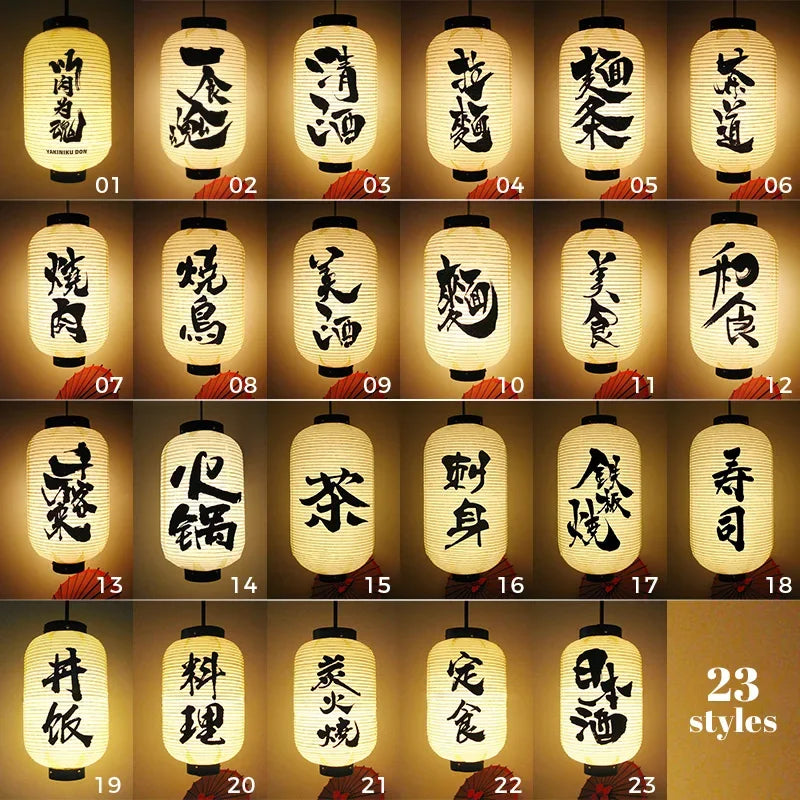 以肉为魂
YAKINIKU DON
01
02
清酒
03
拉麵
04
麵条
05
茶道
06
燒肉
07
燒鳥
08
美酒
09
麵
10
美食
11
和食
12
千客万来
13
火锅
14
茶
15
刺身
16
鉄板焼
17
寿司
18
丼饭
19
料理
20
炭火燒
21
定食
22
日本酒
23
23
styles